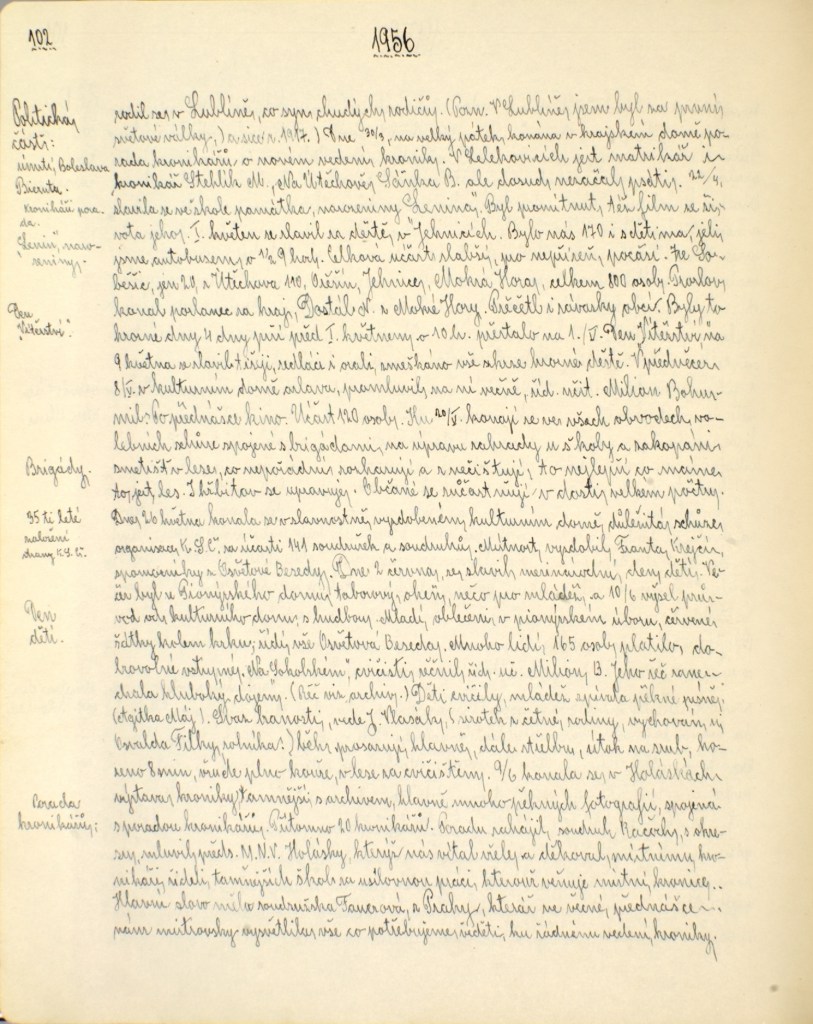 102
1956
Politická
část:
úmrtí Boleslava
Bieruta.
Kronikáři pora-
da.
"Lenin", naro-
zeniny.
Den
"Vítězství".
Brigády.
35 ti leté
založení
strany K.S.Č.
Den
dětí.
Porada
kronikářů:
rodil se v Lublíně, co syn chudých rodičů. (Pozn. V Lublíně jsem byl za první
světové války,) a sice r. 1917.) Dne 30/3, na velký pátek, konána v krajském domě po-
rada kronikářů o novém vedení kroniky. V Lelekovicích jest matrikář i
kronikář Stehlík M., Na Útěchově Sářka B. ale dosud nezačal psáti. 22/4.
slavila se ve škole památka, narozeniny Lenina. Byl promítnut též film ze ži-
vota jeho. I. květen se slavil za deště, v Jehnicích. Bylo nás 170 i s dětma, jeli
jsme autobusem, o 1/2 9 hod. Celková účast slabší, pro nepřízeň, počasí. Ze So-
běšic, jen 20, z Útěchova 110, Ořešín, Jehnice, Mokrá Hora, celkem 800 osob. Proslov
konal poslanec za kraj, Dostál N. z Mokré Hory. Přečetl i závazky obcí. Byly to
hrozné dny, 4 dny prší před I. květnem, o 10 h. přestalo na 1./V. Den Vítězství, na
9 května se slavil též, sedláci i orali, zmeškáno vše skrze hrozné deště. V předvečer
8/V. v kulturním domě oslava, promluvil na ní věcně, říd. učit. Milian Bohu-
mil. Po přednášce kino. Účast 120 osob. Ku 20/V. konají se ve všech obvodech vo-
lebních schůze spojené s brigádami, na úpravu zahrady u školy a zakopání
smetišť v lese, co nepořádní rozhazují a znečišťují, to nejlepší co máme
to jest, les. I hřbitov se upravuje. Občané se zúčastňují v dosti velkém počtu.
Dne 26 května konala se v slavnostně vyzdobeném kulturním domě, důležitá schůze
organisace K.S.Č. za účasti 141 soudružek a soudruhů. Místnost vyzdobil Franta Krejčí,
s pomocníky z Osvětové Besedy. Dne 2 června, se slavil mezinárodní, den, dětí. Ve-
čer byl u Pionýrského domu, táborový, oheň, něco pro mládež, a 10/6 vyšel prů-
vod od kulturního domu s hudbou. Mladí oblečeni v pionýrském úboru, červené
šátky kolem krku, řídí vše Osvětová Beseda. Mnoho lidí, 165 osob platilo do-
brovolné vstupné. Na "Sokolském" cvičišti, učinil, říd. uč. Milián, B. Jeho řeč zane-
chala hluboký dojem. (Řeč viz archiv.) Děti cvičily, mládež zpívala pěkné písně.
(Agitka Máj). Svaz branosti, vede J. Vlasák, (sirotek z četné rodiny, vychován u
Osvalda Filky rolníka.) běh, prosazují hlavně, dále střelbu, útok na srub, ho-
zeno 8 min, všude plno kouře, v lese za cvičištěm. 9/6 konala se, v Holáskách
výstava, kroniky tamnější s archivem, hlavně mnoho pěkných fotografií, spojená
s poradou kronikářů. Přítomno 20 kronikářů. Poradu zahájil, soudruh Bačovký, s okre-
su, mluvil předs. M.N.V. Holásky, kterýž nás vítal vřele, a děkoval, místnímu kro-
nikáři, řediteli, tamnějších škol, za usilovnou práci, kterouž věnuje místní, kronice..
Hlavní slovo měla soudružka Faucrová, z Prahy, kteráž ve věcné, přednášce..
nám mistrovsky vysvětlila vše co potřebujeme, věděti, ku řádnému vedení, kroniky.